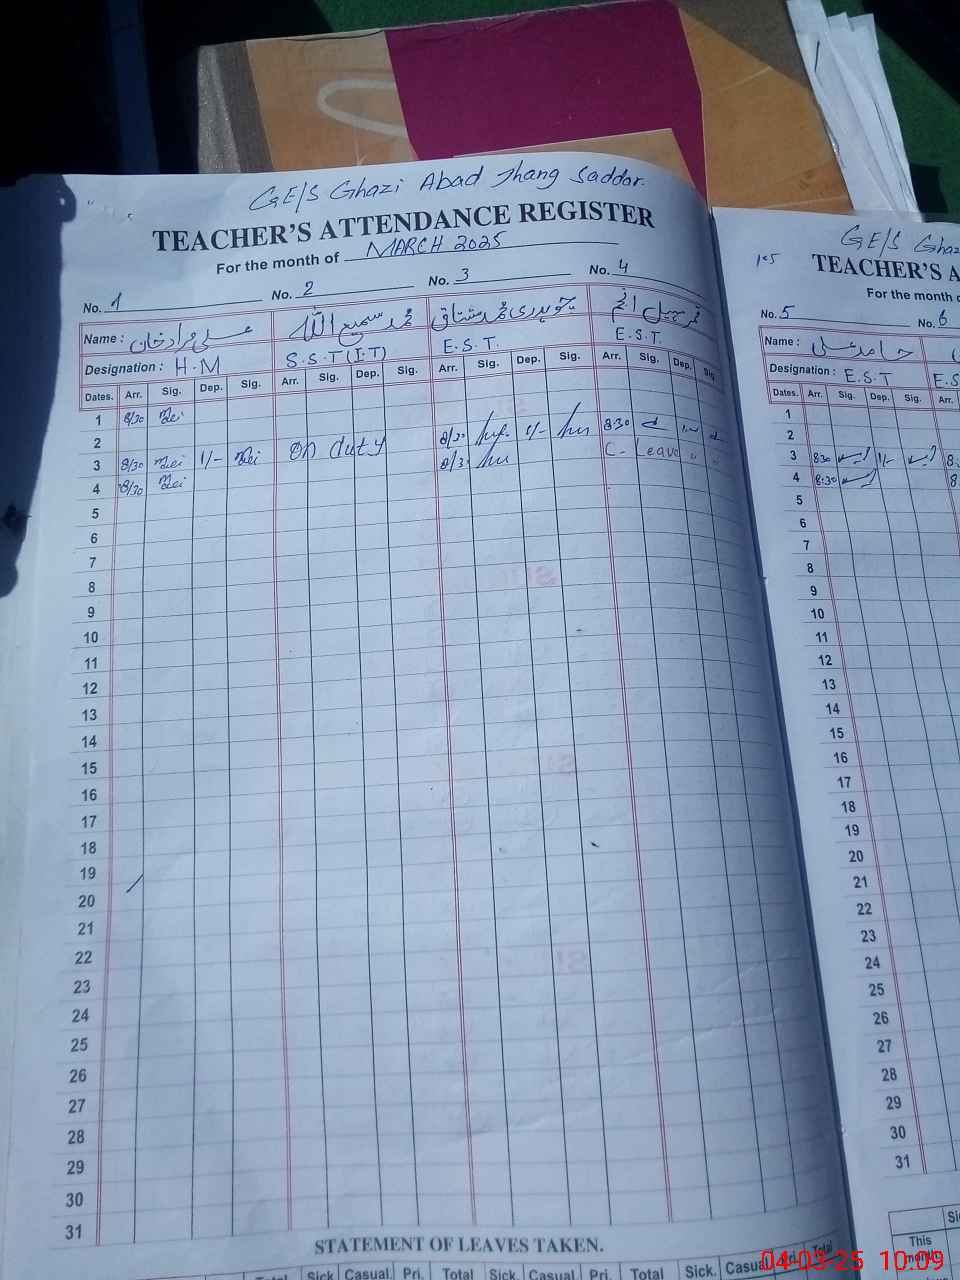 GE/S Ghazi Abad Jhang Saddar.
TEACHER'S ATTENDANCE REGISTER
For the month of MARCH 2025
No. 1 No. 2 No. 3 No. 4
Name : علی مراد خان محمد سمیع اللہ چوہدری محمد مشتاق
Designation : H.M S.S.T (I.T) E.S.T. E.S.T.
Dates. Arr. Sig. Dep. Sig. Arr. Sig. Dep. Sig. Arr. Sig. Dep. Sig. Arr. Sig. Dep. Sig.
1 8/30
2
3 8/30 1/- on duty 8/30 1/- 8:30
4 8/30 8/3 C. Leave
5
6
7
8
9
10
11
12
13
14
15
16
17
18
19
20
21
22
23
24
25
26
27
28
29
30
31
STATEMENT OF LEAVES TAKEN.
Total Sick Casual. Pri. Total Sick Casual. Pri. Total Sick. Casual Pri. Total
GE/S Ghaz
TEACHER'S A
For the month o
No. 5 No. 6
Name : حامد علی
Designation : E.S.T E.S
Dates. Arr. Sig. Dep. Sig. Arr.
1
2
3 830 1/- 8:
4 8:30 8
5
6
7
8
9
10
11
12
13
14
15
16
17
18
19
20
21
22
23
24
25
26
27
28
29
30
31
Si
This
month
04-03-25 10:09